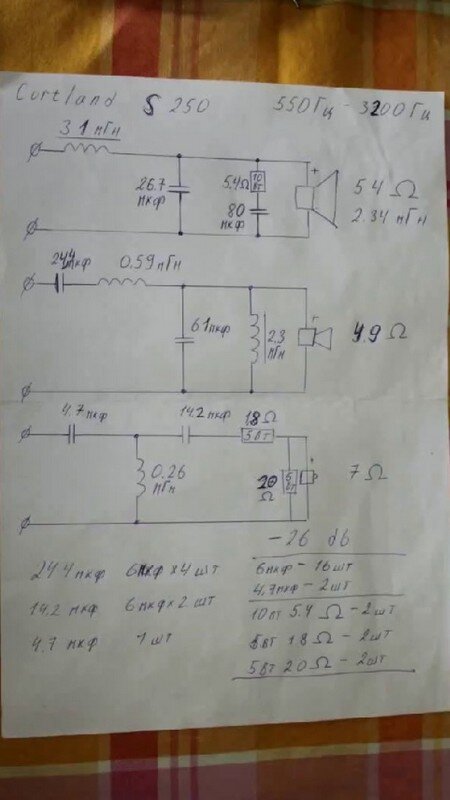 Cortland S 250 550Гц - 3200Гц
3.1 мГн
26.7 мкф
5.4Ω
10 вт
80 мкф
+
5.4 Ω
2.34 мГн
24.4 мкф 0.59 мГн
61 мкф
2.3 мГн
+
4.9 Ω
4.7 мкф 14.2 мкф 18Ω
5 вт
0.26 мГн
20 Ω
5 вт
+
7 Ω
-26 дб
24.4 мкф 6мкф x 4 шт 6мкф - 16 шт
4.7мкф - 2шт
14.2 мкф 6мкф x 2 шт 10вт 5.4 Ω - 2шт
4.7 мкф 1 шт 5вт 18 Ω - 2шт
5вт 20 Ω - 2шт